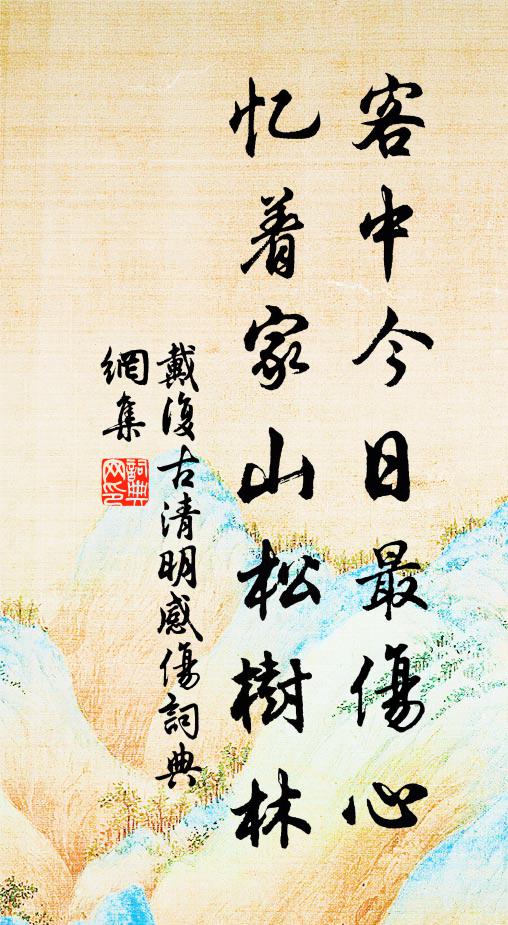 客中今日最傷心
忆着家山松樹林
戴復古清明感傷詞典
網集
詞典
网印